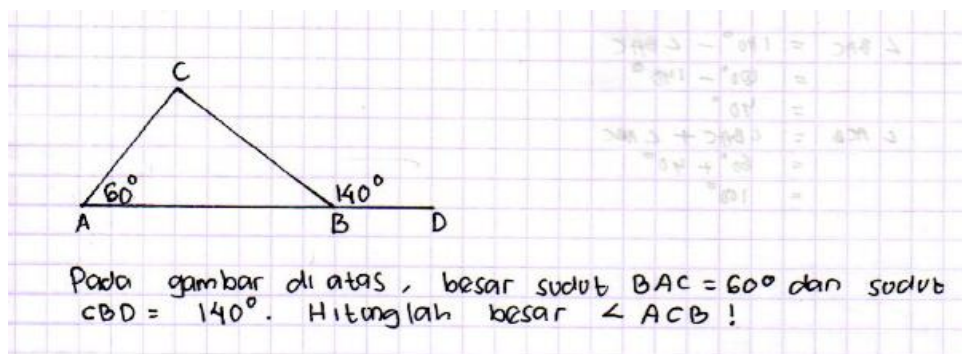 C
60°
140°
A
B
D
Pada gambar di atas, besar sudut BAC = 60° dan sudut
CBD = 140°. Hitunglah besar ∠ ACB !